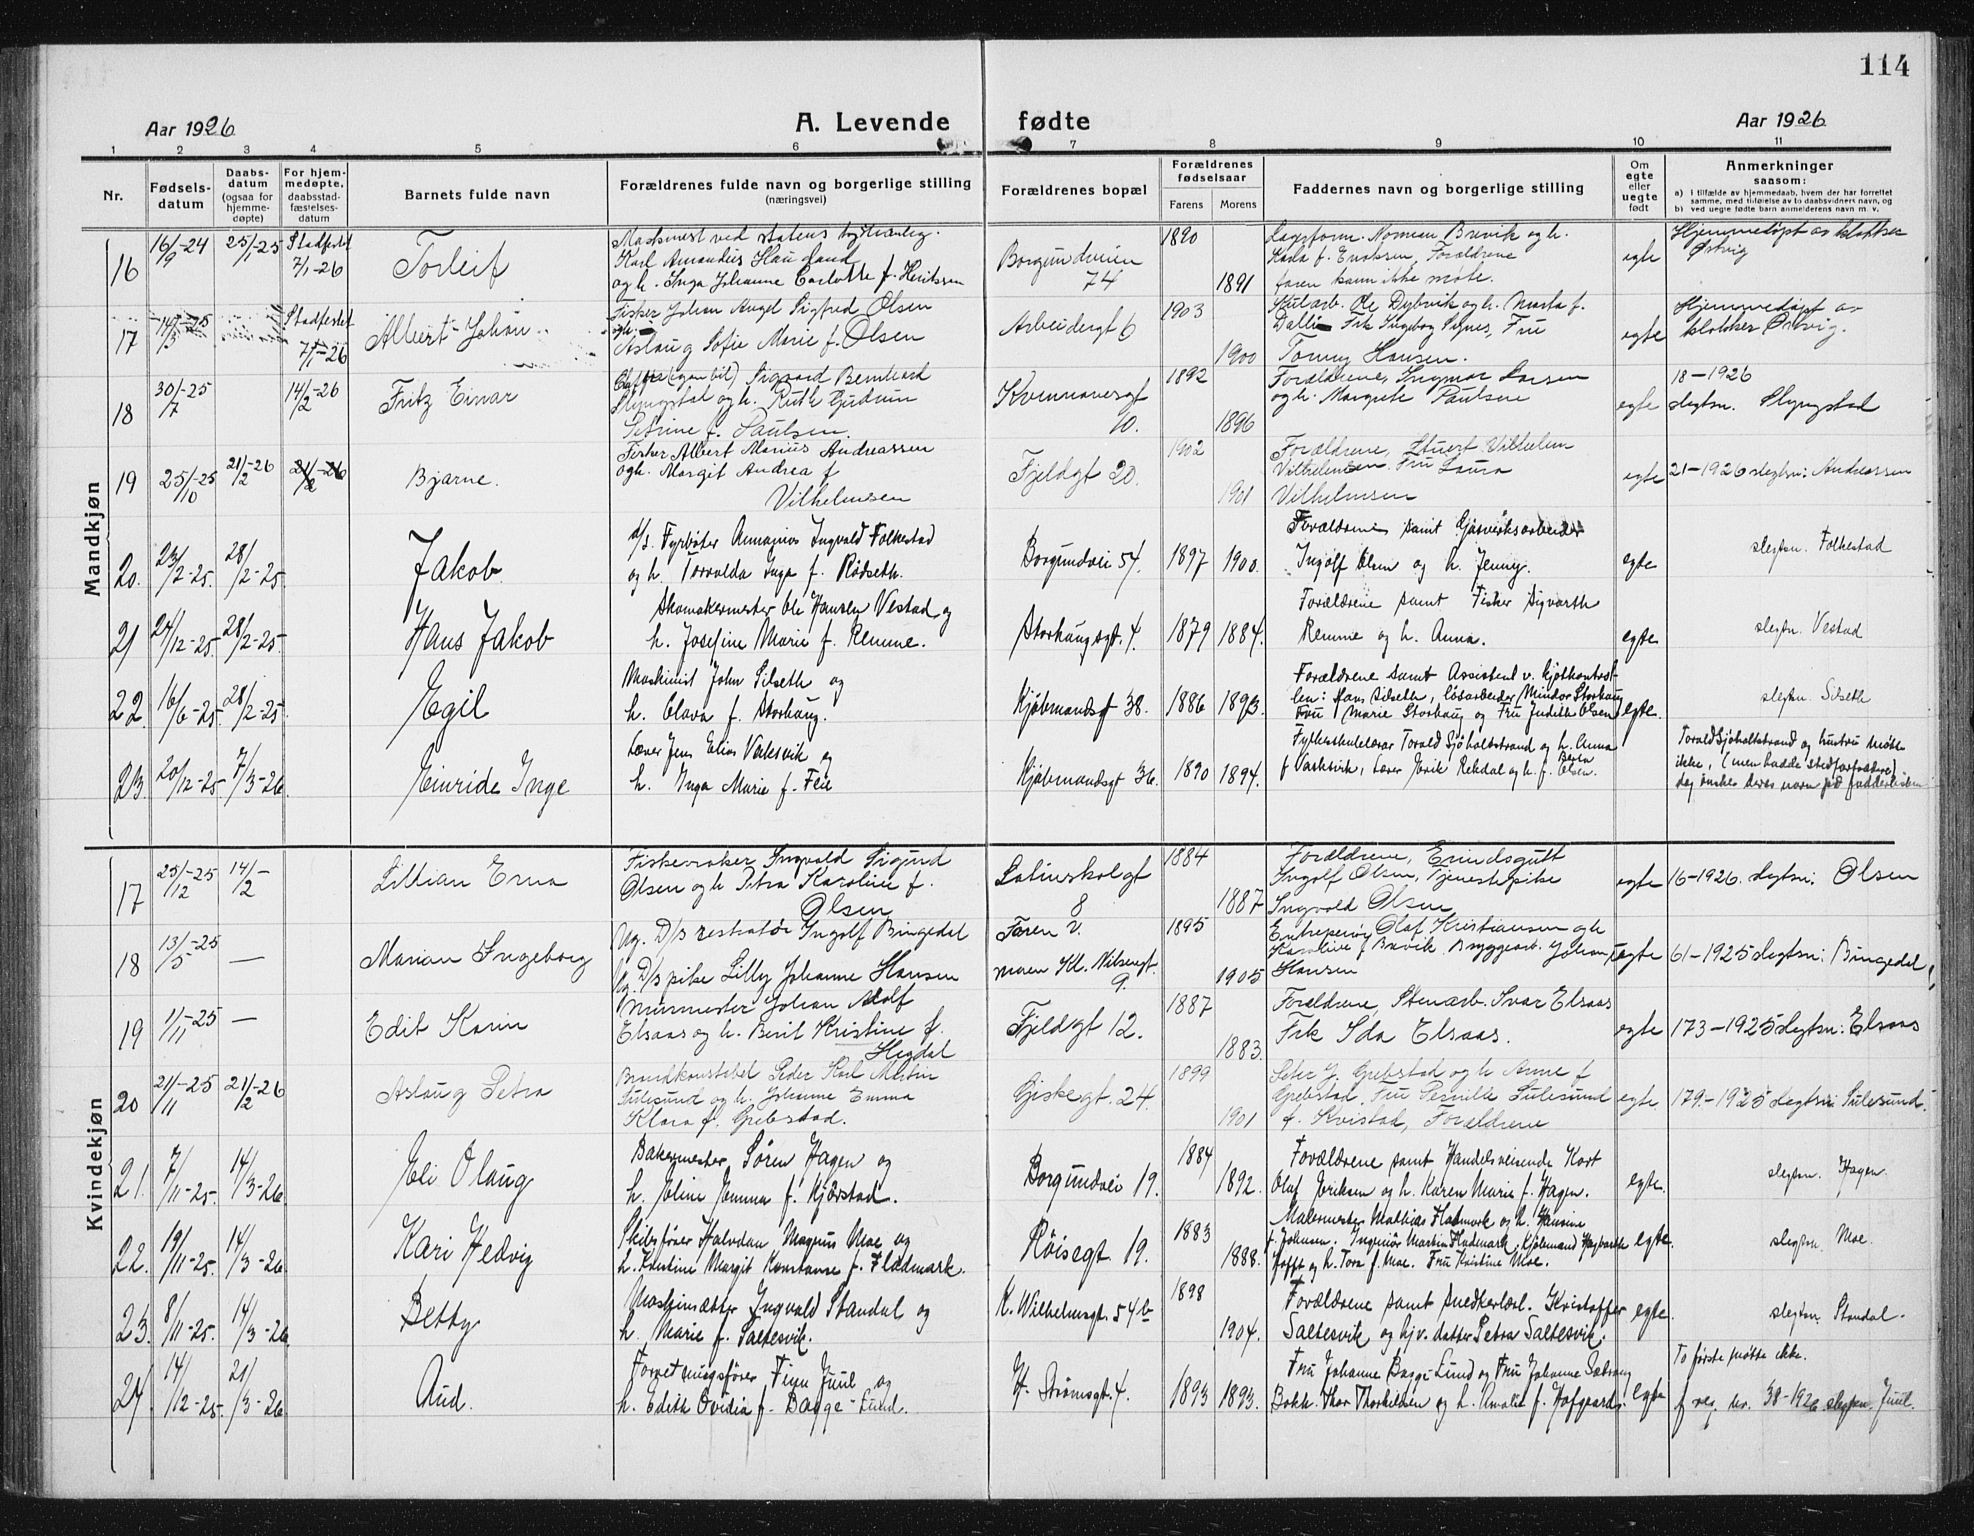 114
Aar 1926
A. Levende fødte
Aar 1926
1 2 3 4 5 6 7 8 9 10 11
Nr.
Fødsels-
datum
Daabs-
datum
(ogsaa for
hjemme-
døpte)
For hjem-
medøpte,
daabsstad-
fæstelses-
datum
Barnets fulde navn
Forældrenes fulde navn og borgerlige stilling
(næringsvei)
Forældrenes bopæl
Forældrenes
fødselsaar
Farens Morens
Faddernes navn og borgerlige stilling
Om
egte
eller
uegte
født
Anmerkninger
saasom:
a) i tilfælde av hjemmedaab, hvem der har forrettet
samme, med tilføielse av to daabsvidners navn, og
b) ved uegte fødte barn anmelderens navn m. v.
Mandkjøn
16 16/9-24 25/1-25 Stadfestet 7/1-26 Torleif
Karl Amandus
og h. Inga Johanne f.
Borgundveien 74
1890 1891
Forældrene
faren kunde ikke møte.
egte
Hjemmedøpt av klokker
17 Stadfestet 7/1-26 Albert Johan
Fisker Johan Sigfred Olsen
og h. Aslaug Sofie Marie f. Olsen
Arbeidergt 6
1903 1900
Ole Dybvik og h. Marta f.
Frk Ingeborg Fru
Tommy Hansen.
egte
Hjemmedøpt av
klokker
18 30/7-25 14/2-26 Fritz Einar
Sigvard Bernhard
Slyngstad og h. Ruth Gudrun
Petrine f. Paulsen.
10.
1892 1896
Forældrene, Ingmar Larsen
og h. Margrete Paulsen
egte
18-1926
slegtsn. Slyngstad
19 25/10-25 21/2-26 21/2-26 Bjarne.
Fisker Albert Marius Andreassen
og h. Margit Andrea f
Vilhelmsen
Fjeldgt 20.
1902 1901
Forældrene, Stuert Vilhelm
Vilhelmsen Fru Laura
Vilhelmsen
egte
21-1926 slegtsn: Andreassen
20. 23/2-25. 28/2-25. Jakob
Fyrbøter Ingvald Folkestad
og h. Torvalda Inga f. Rødseth.
Borgundvei 54.
1897 1900.
Forældrene samt Gasverksarbeider
Ingolf Olsen og h. Jenny.
egte
slegtsn. Folkestad
21 24/12-25. 28/2-25. Hans Jakob
Skomakermester Ole Hansen Vestad og
h. Josefine Marie f. Remme.
Storhaugsgt. 4.
1879 1884.
Forældrene samt Fisker Sigvarth
Remme og h. Anna.
egte
slegtsn. Vestad
22. 16/6-25. 28/2-25. Egil
Maskinist John Silseth og
h. Olava f. Storhaug.
Kjøbmandsgt 38.
1886 1893.
Forældrene samt Assistent v. kjøtkontrol-
len: Hans Silseth, løsarbeider Mindor Storhaug
Fru Marie Storhaug og Fru Judith Olsen
egte.
slegtsn. Silseth
23. 20/12-25. 7/3-26. Einride Inge
Lærer Jens Elias Vatsvik og
h. Inga Marie f. Feie
Kjøbmandsgt 36.
1890 1894.
Fylkesskulelærar Torvald Sjøholtstrand og h. Anna
f. lærer Eirik Rekdal og h. Berta f. Olsen.
Torvald Sjøholtstrand og hustru møtte
ikke, (men hadde
Kvindekjøn
17 25/12-25 14/2- Lillian Erna
Fiskevraker Ingvald Sigurd
Olsen og h. Petra Karoline f.
Olsen
Latinskolegt
8
1884 1887
Forældrene, Ærindsgutt
Ingolf Olsen, Tjenestepike
Ingvald Olsen
egte
16-1926. slegtsn: Olsen
18 13/5-25 — Marian Ingeborg
Ug. D/S Ingolf Bingedal
Ug. D/S pike Lilly Johanne Hansen
Faren V.
moren Kl. Nilsengt.
9.
1895 1905
Entreprenør Olaf Kristiansen og h.
Karoline f. Brevik. Bryggearb. Johan
Hansen
uegte
61-1925 slegtsn: Bingedal
19 11/11-25 — Edit Karin
Murmester Johan Adolf
Elsaas og h. Berit Kristine f.
Hegdal
Fjeldgt 12.
1887 1883.
Forældrene, Stenarb. Ivar Elsaas
Frk Ida Elsaas.
egte
173-1925 slegtsn: Elsaas
20 21/11-25 21/2-26 Aslaug Petra
Brandkonstabel Peder Karl Martin
Sulesund og h. Johanne Emma
Klara f. Grebstad.
Giskegt 24.
1899 1901
Peter J. Grebstad og h Anne f
Grebstad. Fru Pernille Sulesund
f. Kvistad, Forældrene
egte
179.-1925 slegtsn: Sulesund.
21. 7/11-25. 14/3-26. Eli Olaug
Bakermester Søren Hagen og
h. Eline Emma f. Kjørstad.
Borgundvei 19.
1884 1892.
Forældrene samt Handelsreisende Kort
Olaf Eriksen og h. Karen Marie f. Hagen.
egte.
slegtsn. Hagen
22. 19/11-25. 14/3-26 Kari Hedvig
Skibsfører Halvdan Magnus Moe og
h. Kristine Margit Konstanse f. Fladmark.
Røisegt 19.
1883 1888.
Malermester Mathias Fladmark og h. Hansine
f. Johnsen. Ingeniør Martin Fladmark, Kjøbmand
og h. Tora f. Moe. Fru Kristine Moe.
egte.
slegtsn. Moe.
23. 8/11-25. 14/3-26. Betty
Maskinsætter Ingvald Standal og
h. Marie f. Saltesvik.
K. Wilhelmsgt. 54b
1898 1904.
Forældrene samt snedkerlærl. Kristoffer
Saltesvik og hjv. datter Petra Saltesvik.
egte.
slegtsn. Standal.
24. 14/12-25. 21/3-26. Aud.
Forretningsfører Finn Juul og
h. Edith Ovidia f. Bagge-Lund.
H. Strømsgt. 4.
1893 1893.
Fru Johanne Bagge Lund og Fru Johanne
Bokh. Thor Thorkildsen og h. Amalie f. Hofgaard.
egte
To første møtte ikke.
f reg. nr. 38-1926 slegtsn. Juul.